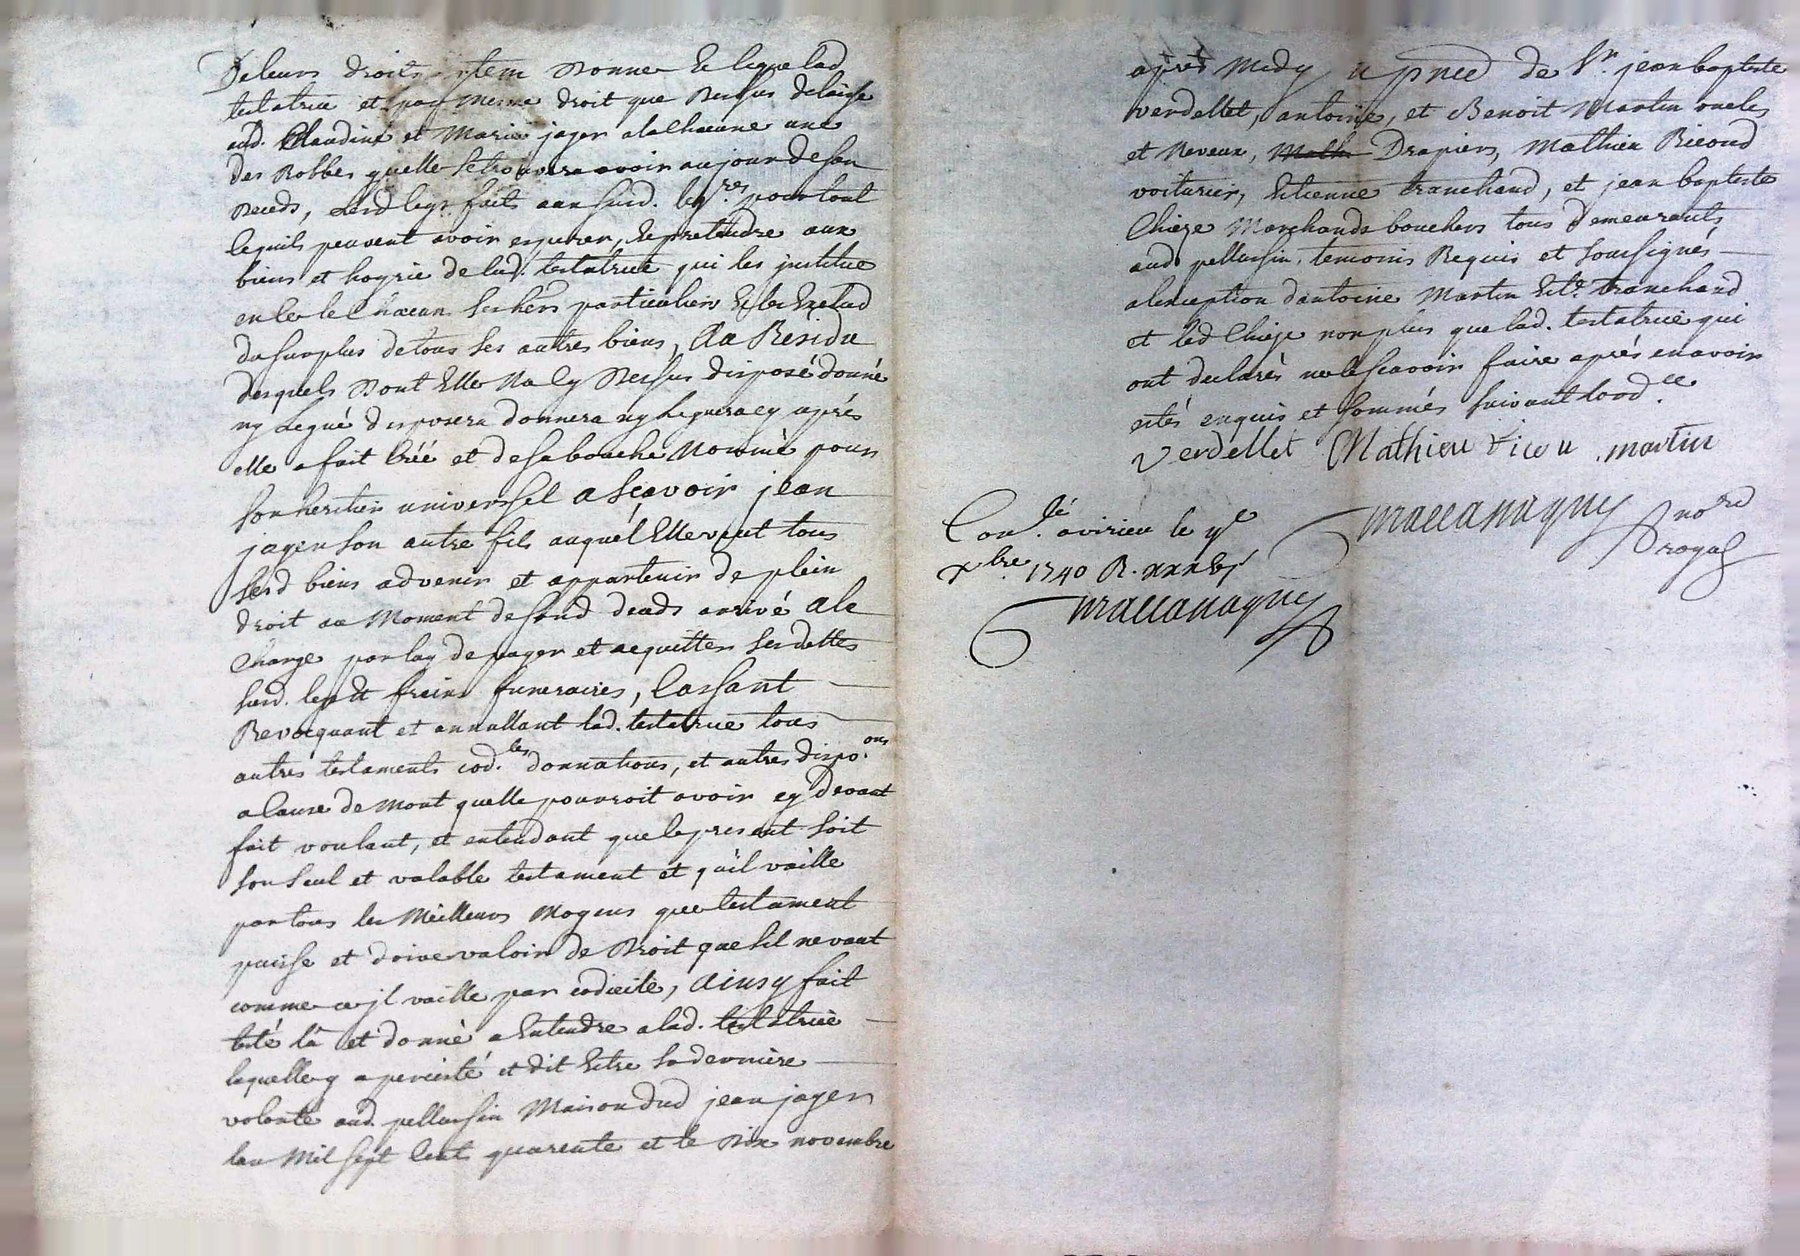 De leurs droits, item Donne & legue lad
testatrice et par mesme droit que Dessus delaisse
aud. Claudine et Marie jager alachacune une
des Robbes quelle se trouvera avoir au jour de son
Deceds, lesd legs faits aux susd. leg.res pour tout
lequils peuvent avoir esperer, & pretendre aux
biens et hoyrie de lad. testatrice qui les institue
en ce le Chacun ses hers particuliers & les Exclud
du surplus de tous ses autres biens, Au Residu
desquels Dont Elle Na cy Dessus disposé donné
ny Legué disposera donnera ny leguera cy aprés
elle a fait Créé et de sa bouche Nommé pour
son heritier universel a sçavoir jean
jager son autre fils auquel Elle veut tous
sesd biens advenir et appartenir de plein
droit au Moment de sond deceds arrivé a la
Charge par luy de payer et acquitter ses dettes
susd. legs et frains funeraires, Cassant
Revocquant et annullant lad. testatrice tous
autres testaments cod.les donnations, et autres dispo.ons
a Cause de Mort quelle pourroit avoir cy devant
fait voulant, et entendant que le present soit
son seul et valable testament et quil vaille
par tous les Meilleurs Moyens que testament
puisse et doive valoir de Droit que sil ne vaut
comme ce jl vaille par codicile, Ainsy fait
testé lû et donné a Entendre a lad. testatrice
laquelle y a percisté et dit Estre sa derniere
volonté aud. pellussin Maison dud jean jager
lan Mil sept Cent quarente et le Dix novembre
après Midy en pnce de Sr. jean baptiste
verdellet, antoine, et Benoit Martin oncles
et Neveux, Drapiers, Mathieu Ricoud
voiturier, Estienne tranchand, et jean baptiste
Chieze Marchands bouchers tous demeurants
aud pellussin, temoins Requis et soussignés
alexception dantoine Martin Est.e tranchand
et led Chieze non plus que lad. testatrice qui
ont declarés ne le scavoir faire aprés en avoir
estés enquis et sommés suivant lord.ce
Verdellet Mathieu Ricou martin
Maccanagny no.re
royal
Con.lé a virieu le
xbre 1740 R.
Maccanagny